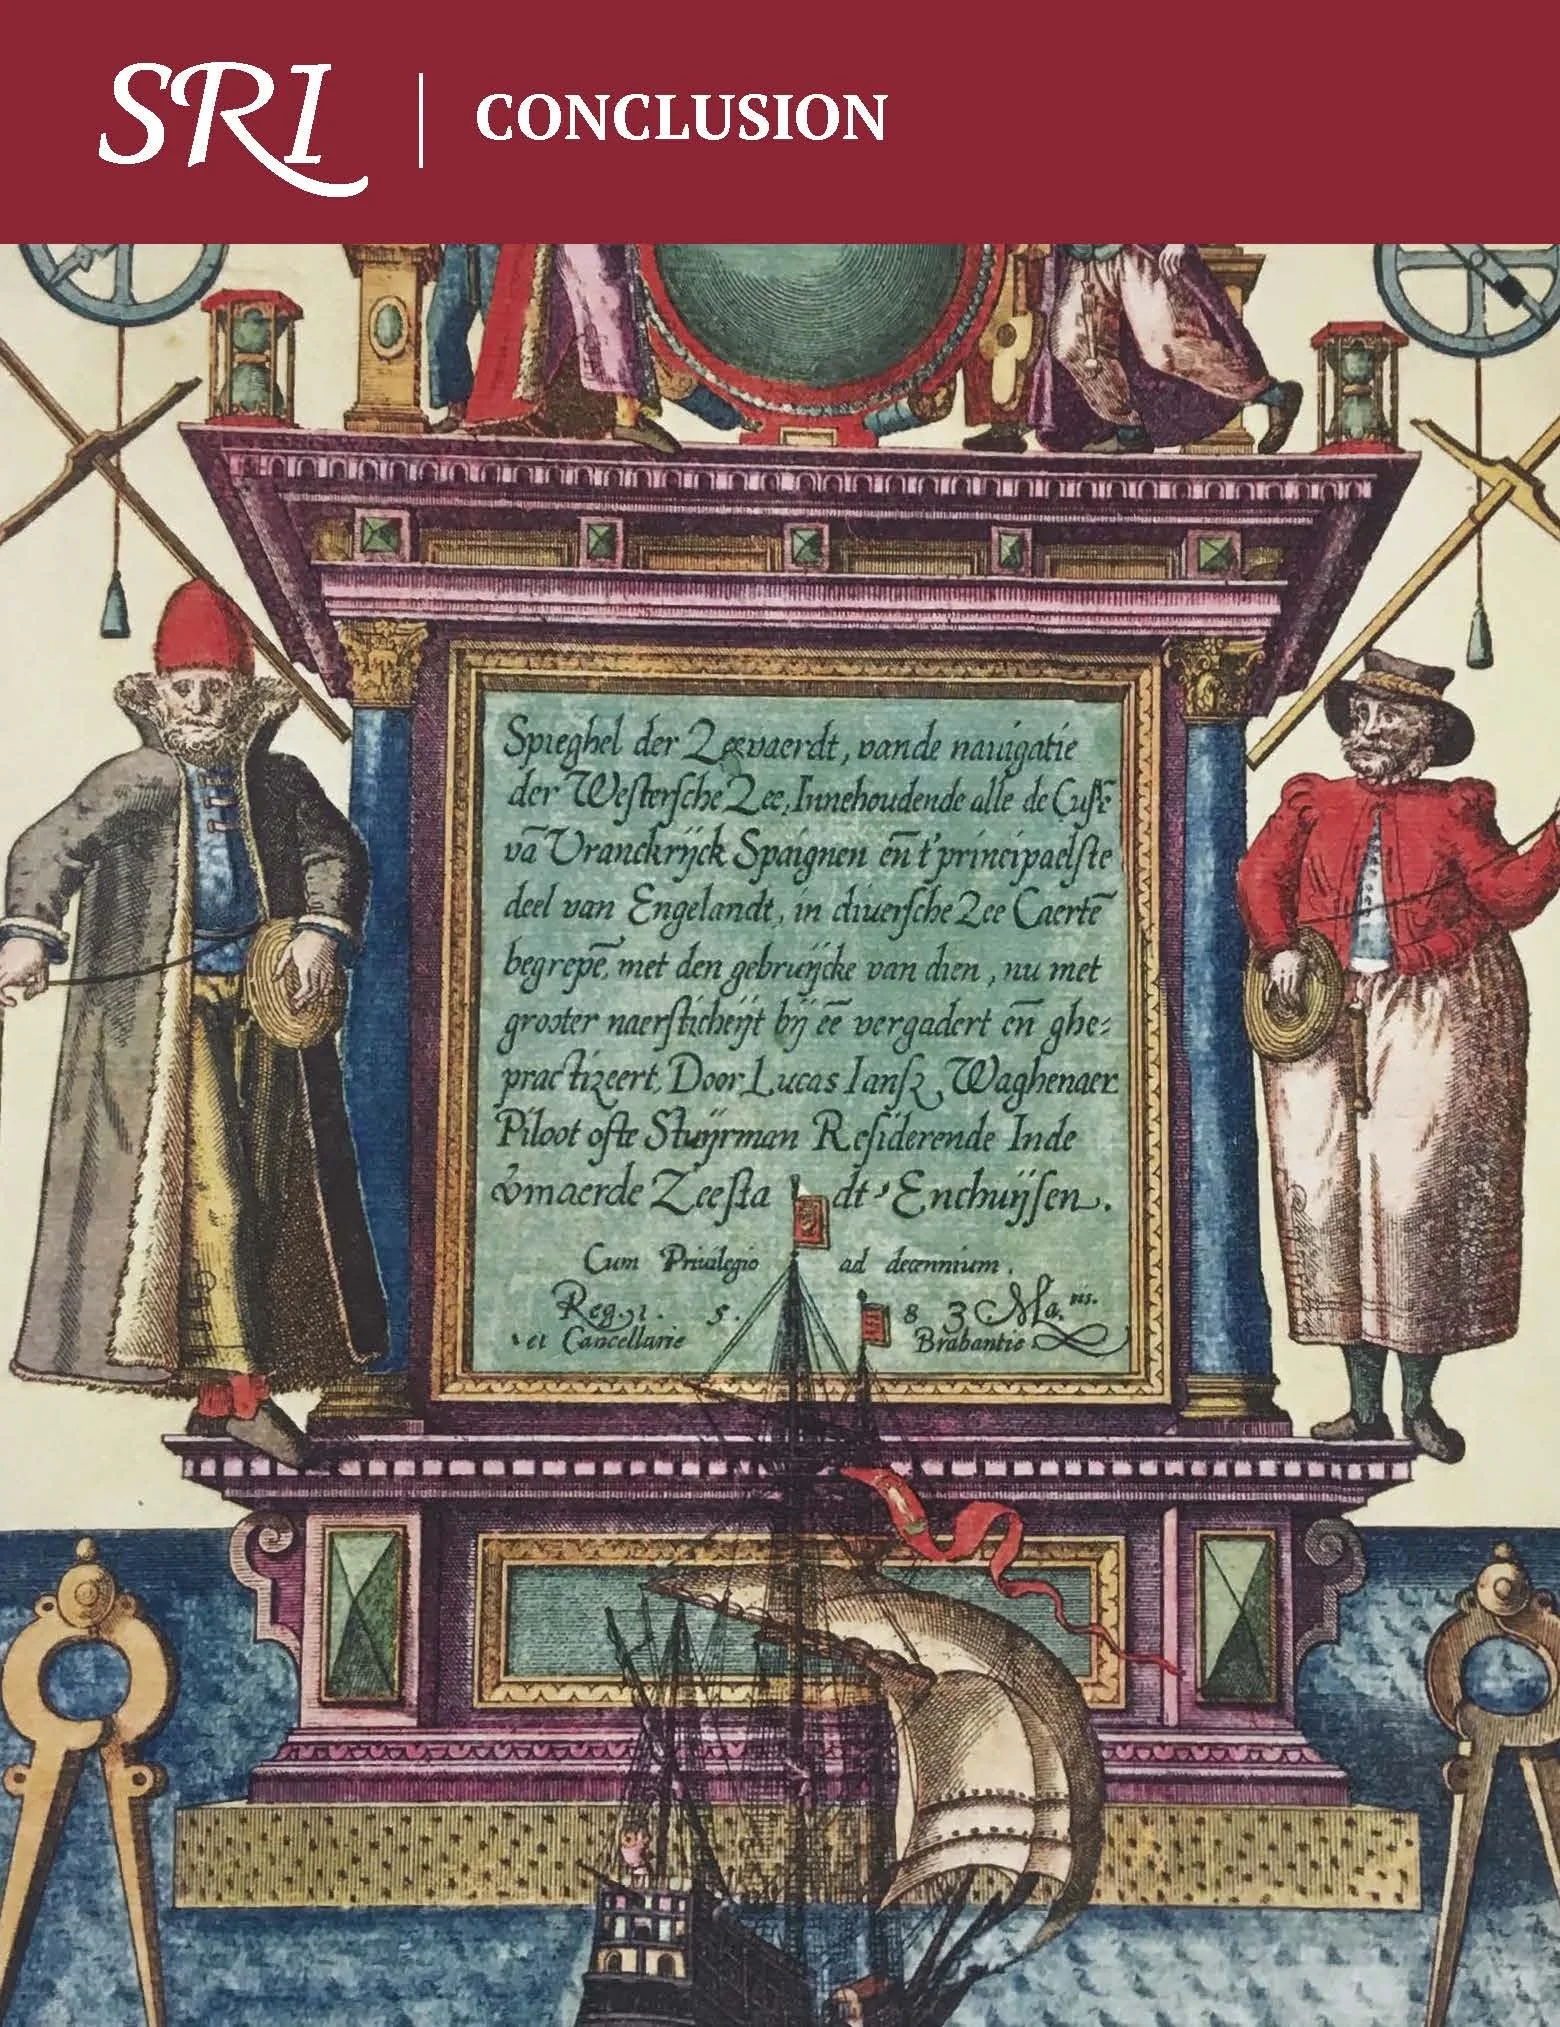 SRI | CONCLUSION
Spieghel der Zeevaerdt, vande nauigatie
der Westersche Zee, Innehoudende alle de Custē
vā Vranckrijck Spaignen en̄ t'principaelste
deel van Engelandt, in diuersche Zee Caertē
begrepē, met den gebruijcke van dien, nu met
grooter naersticheijt bij eē vergadert en̄ ghe=
practizeert, Door Lucas Iansz Waghenaer
Piloot ofte Stuijrman Residerende Inde
vmaerde Zeestadt Enchuijsen.
Cum Priuilegio ad decennium.
Reg. 1. 5. 8 3 Ma.tis.
et Cancellarie Brabantie